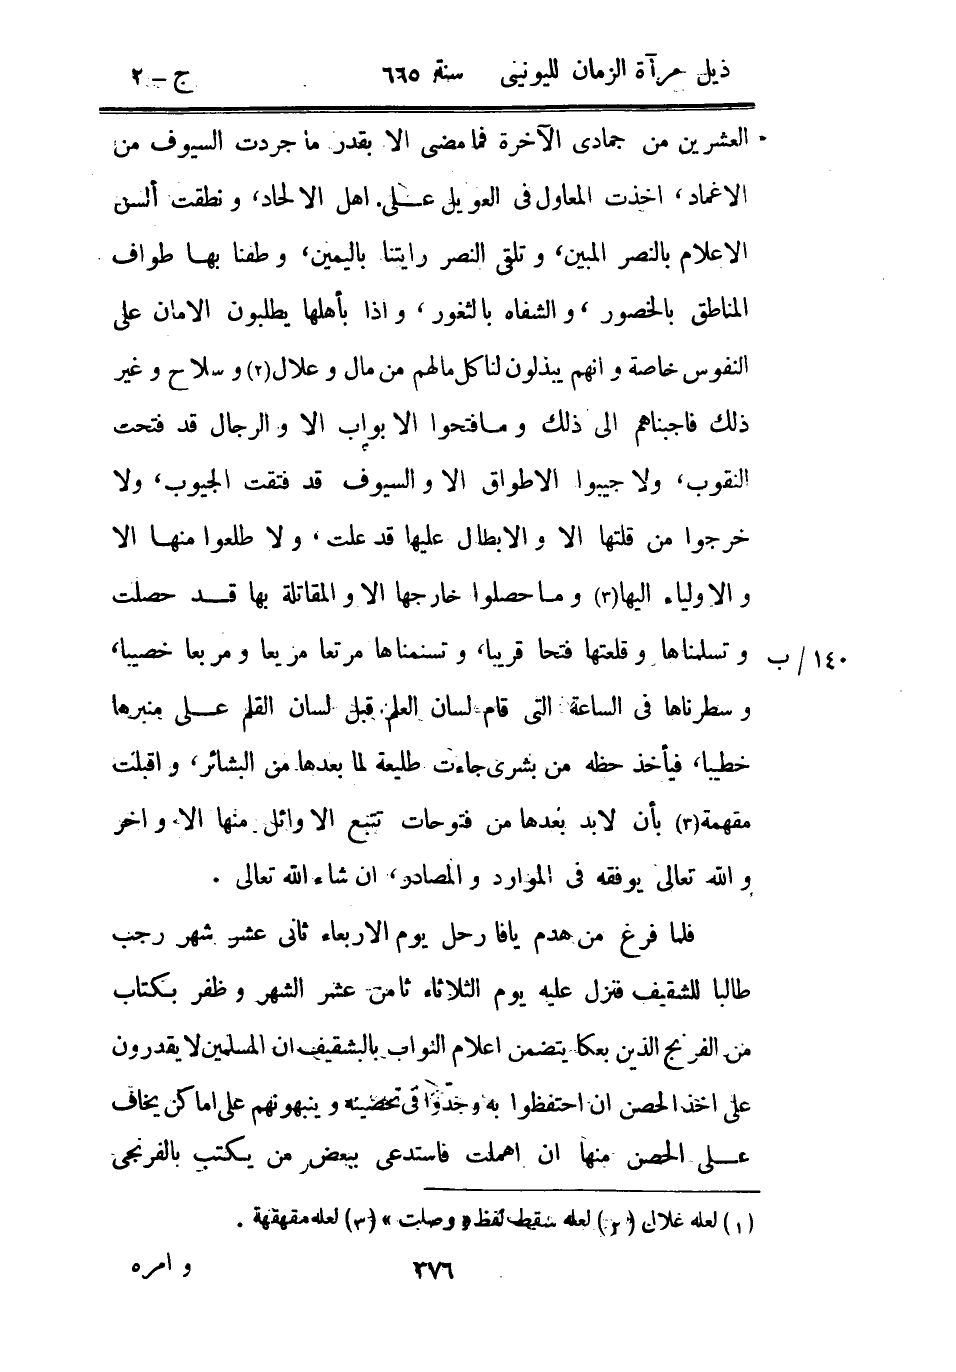 ذيل مرآة الزمان لليونينى سنة ٦٦٥ ج – ٢
العشرين من جمادى الآخرة فما مضى الا بقدر ما جردت السيوف من
الاغماد، اخذت المعاول فى العويل على اهل الالحاد، و نطقت ألسن
الاعلام بالنصر المبين، و تلقى النصر رايتنا باليمين، و طفنا بها طواف
المناطق بالخصور، و الشفاه بالثغور، و اذا بأهلها يطلبون الامان على
النفوس خاصة و انهم يبذلون لنا كل مالهم من مال و علال(٢) و سلاح و غير
ذلك فاجبناهم الى ذلك و مافتحوا الابواب الا و الرجال قد فتحت
النقوب، ولا جيبوا الاطواق الا و السيوف قد فتقت الجيوب، ولا
خرجوا من قلتها الا و الابطال عليها قد علت، و لا طلعوا منها الا
و الاولياء اليها(٣) و ما حصلوا خارجها الا و المقاتلة بها قد حصلت
و تسلمناها و قلعتها فتحا قريبا، و تسنمناها مرتعا مزيعا و مربعا خصيبا، ١٤٠/ ب
و سطرناها فى الساعة التى قام لسان العلم قبل لسان القلم على منبرها
خطيبا، فيأخذ حظه من بشرى جاءت طليعة لما بعدها من البشائر، و اقبلت
مقهمة(٣) بأن لابد بعدها من فتوحات تتبع الاوائل منها الا و اخر
و الله تعالى يوفقه فى الموارد و المصادر، ان شاء الله تعالى .
فلما فرغ من هدم يافا رحل يوم الاربعاء ثانى عشر شهر رجب
طالبا للشقيف فنزل عليه يوم الثلاثاء ثامن عشر الشهر و ظفر بكتاب
من الفرنج الذين بعكا يتضمن اعلام النواب بالشقيف ان المسلمين لا يقدرون
على اخذ الحصن ان احتفظوا به وجدّوا فى تحصينه و ينبهونهم على اماكن يخاف
على الحصن منها ان اهملت فاستدعى ببعض من يكتب بالفرنجى
(١) لعله غلال (٢) لعله سقط لفظ « وصلت » (٣) لعله مقهقهة .
٣٧٦ و امره